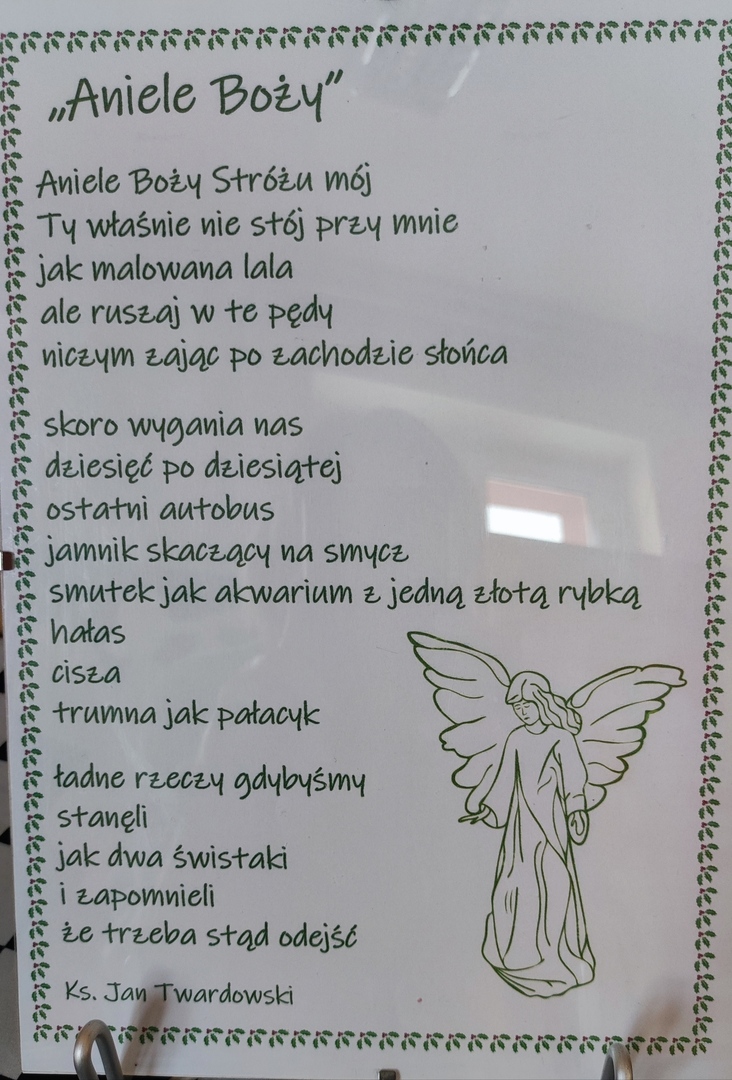 „Aniele Boży”
Aniele Boży Stróżu mój
Ty właśnie nie stój przy mnie
jak malowana lala
ale ruszaj w te pędy
niczym zając po zachodzie słońca
skoro wygania nas
dziesięć po dziesiątej
ostatni autobus
jamnik skaczący na smycz
smutek jak akwarium z jedną złotą rybką
hałas
cisza
trumna jak pałacyk
ładne rzeczy gdybyśmy
stanęli
jak dwa świstaki
i zapomnieli
że trzeba stąd odejść
Ks. Jan Twardowski